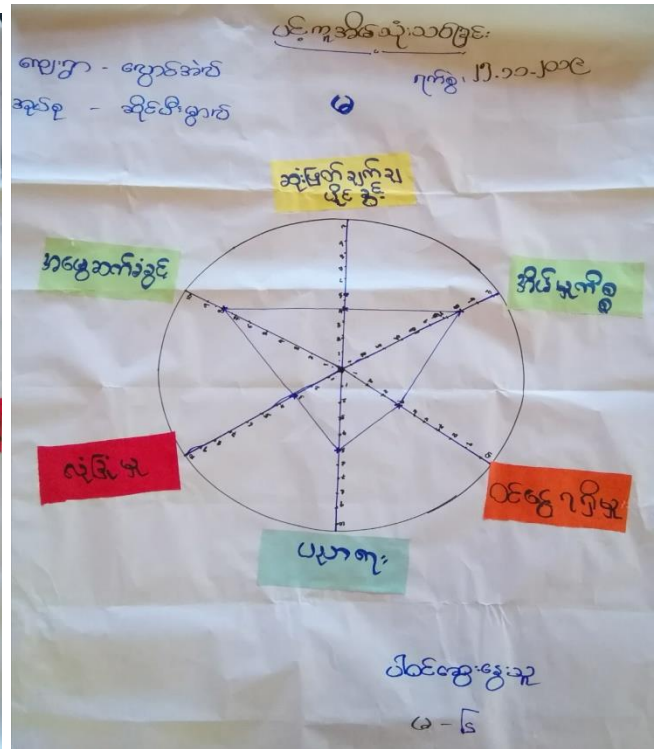 ပင့်ကူအိမ်သုံးသပ်ခြင်း
ကျေးရွာ -
ရက်စွဲ၊ ၂၅.၁၁.၂၀၁၉
အုပ်စု -
မ
ဆုံးဖြတ်ချက်ချ
ပိုင်ခွင့်
အမွေဆက်ခံခွင့်
အိမ်မှုကိစ္စ
လုံခြုံမှု
ဝင်ငွေရရှိမှု
ပညာရေး
ပါဝင်ဆွေးနွေးသူ
မ - ၆